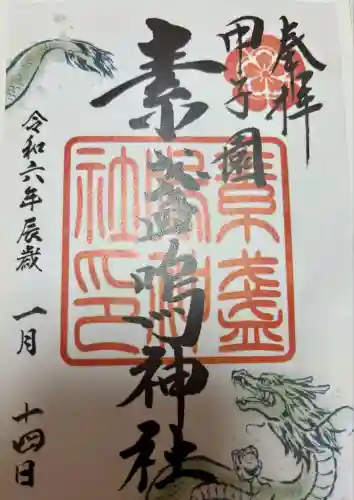 奉拝
甲子園
素盞嗚神社
素盞嗚神社印
令和六年辰歳
一月
十四日